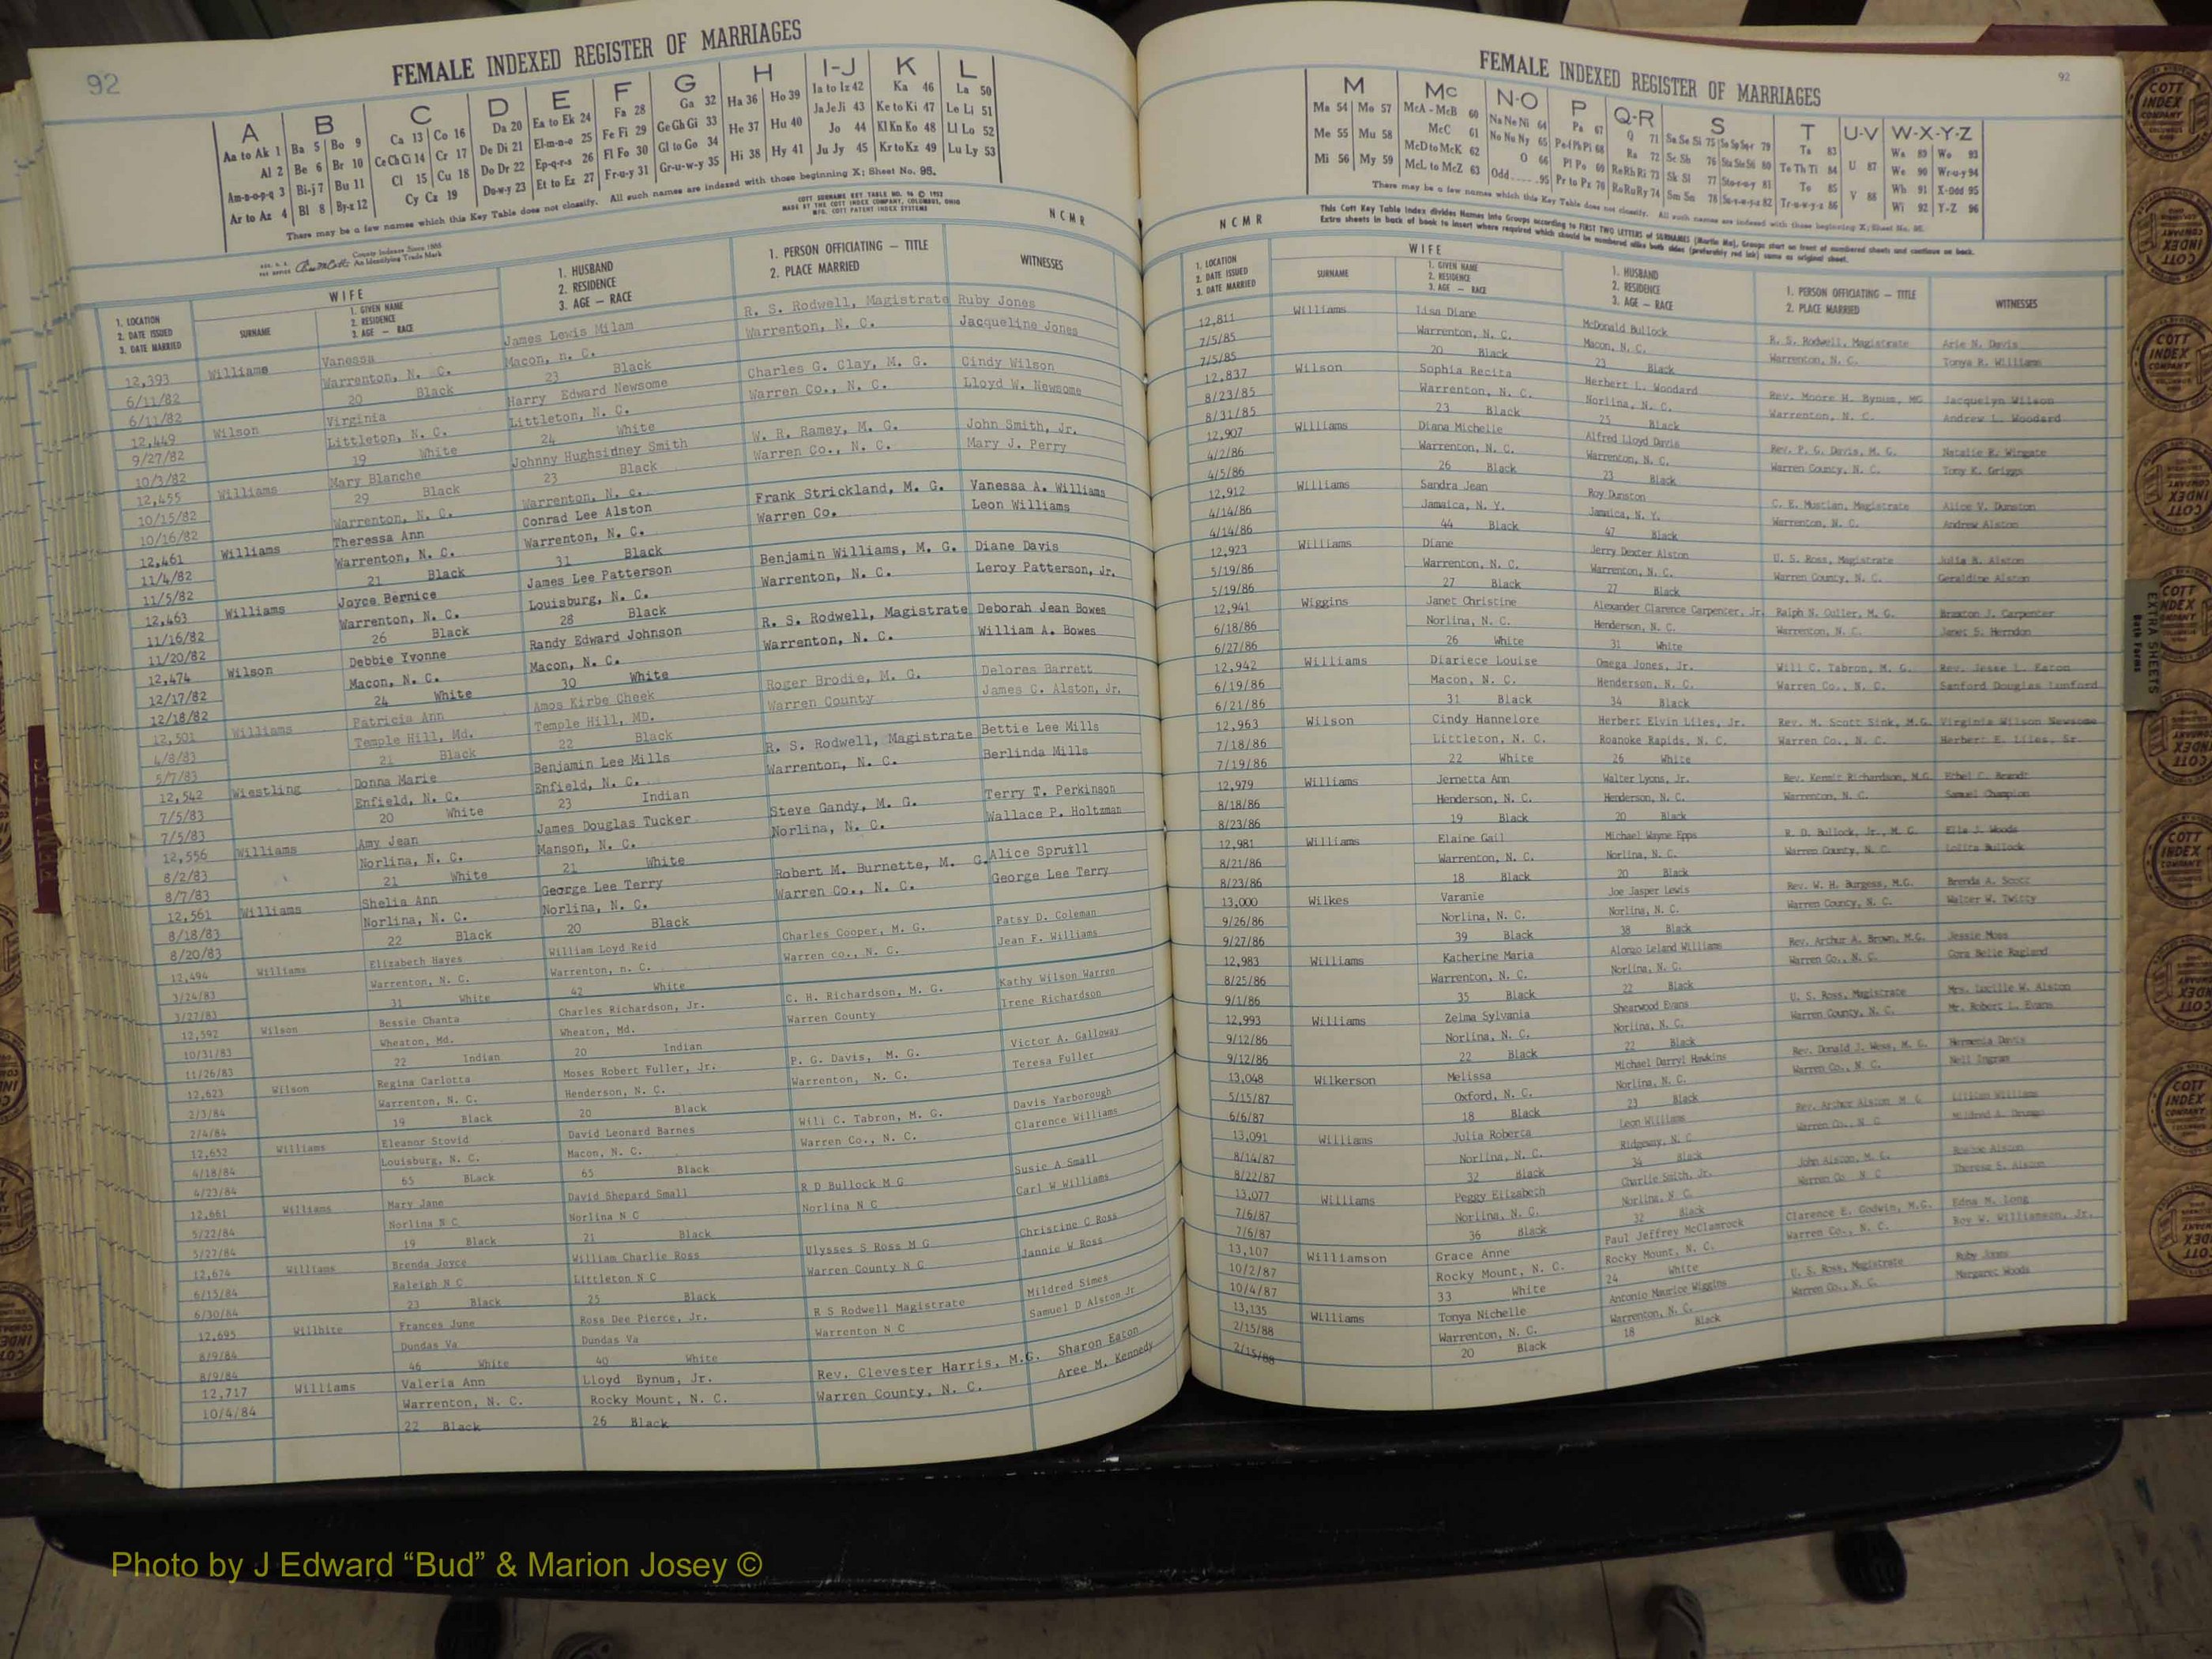 92
FEMALE INDEXED REGISTER OF MARRIAGES
A B C D E F G H I-J K L
Aa to Ak 1 Ba 5 Bo 9 Ca 13 Co 16 Da 20 Ea to Ek 24 Fa 28 Ga 32 Ha 36 Ho 39 Ia to Iz 42 Ka 46 La 50
Al 2 Be 6 Br 10 Ce Ch Ci 14 Cr 17 De Di 21 El-m-n-o 25 Fe Fi 29 Ge Gh Gi 33 He 37 Hu 40 Ja Je Ji 43 Ke to Ki 47 Le Li 51
Am-n-o-p-q 3 Bi-j 7 Bu 11 Cl 15 Cu 18 Do Dr 22 Ep-q-r-s 26 Fl Fo 30 Gl to Go 34 Hi 38 Hy 41 Jo 44 Kl Kn Ko 48 Ll Lo 52
Ar to Az 4 Bl 8 By-z 12 Cy Cz 19 Du-w-y 23 Et to Ez 27 Fr-u-y 31 Gr-u-w-y 35 Ju Jy 45 Kr to Kz 49 Lu Ly 53
There may be a few names which this Key Table does not classify. All such names are indexed with those beginning X; Sheet No. 95.
County Indexes Since 1888
An Identifying Trade Mark
COTT SURNAME KEY TABLE NO. 96 © 1952
MADE BY THE COTT INDEX COMPANY, COLUMBUS, OHIO
MFG. COTT PATENT INDEX SYSTEMS
N C M R
1. LOCATION
2. DATE ISSUED
3. DATE MARRIED
WIFE
SURNAME
1. GIVEN NAME
2. RESIDENCE
3. AGE — RACE
1. HUSBAND
2. RESIDENCE
3. AGE — RACE
1. PERSON OFFICIATING — TITLE
2. PLACE MARRIED
WITNESSES
12,393 Williams Vanessa James Lewis Milam R. S. Rodwell, Magistrate Ruby Jones
6/11/82 Warrenton, N. C. Macon, n. C. Warrenton, N. C. Jacqueline Jones
6/11/82 20 Black 23 Black
12,449 Wilson Virginia Harry Edward Newsome Charles G. Clay, M. G. Cindy Wilson
9/27/82 Littleton, N. C. Littleton, N. C. Warren Co., N. C. Lloyd W. Newsome
10/3/82 19 White 24 White
12,455 Williams Mary Blanche Johnny Hughsidney Smith W. R. Ramey, M. G. John Smith, Jr.
10/15/82 29 Black 23 Black Warren Co., N. C. Mary J. Perry
10/16/82 Warrenton, N. C. Warrenton, N. c.
12,461 Williams Theressa Ann Conrad Lee Alston Frank Strickland, M. G. Vanessa A. Williams
11/4/82 Warrenton, N. C. Warrenton, N. C. Warren Co. Leon Williams
11/5/82 21 Black 31 Black
12,463 Williams Joyce Bernice James Lee Patterson Benjamin Williams, M. G. Diane Davis
11/16/82 Warrenton, N. C. Louisburg, N. C. Warrenton, N. C. Leroy Patterson, Jr.
11/20/82 26 Black 28 Black
12,474 Wilson Debbie Yvonne Randy Edward Johnson R. S. Rodwell, Magistrate Deborah Jean Bowes
12/17/82 Macon, N. C. Macon, N. C. Warrenton, N. C. William A. Bowes
12/18/82 24 White 30 White
12,501 Williams Patricia Ann Amos Kirbe Cheek Roger Brodie, M. G. Delores Barrett
4/8/83 Temple Hill, Md. Temple Hill, MD. Warren County James C. Alston, Jr.
5/7/83 21 Black 22 Black
12,542 Wiestling Donna Marie Benjamin Lee Mills R. S. Rodwell, Magistrate Bettie Lee Mills
7/5/83 Enfield, N. C. Enfield, N. C. Warrenton, N. C. Berlinda Mills
7/5/83 20 White 23 Indian
12,556 Williams Amy Jean James Douglas Tucker Steve Gandy, M. G. Terry T. Perkinson
8/2/83 Norlina, N. C. Manson, N. C. Norlina, N. C. Wallace P. Holtzman
8/7/83 21 White 21 White
12,561 Williams Shelia Ann George Lee Terry Robert M. Burnette, M. G. Alice Spruill
8/18/83 Norlina, N. C. Norlina, N. C. Warren Co., N. C. George Lee Terry
8/20/83 22 Black 20 Black
12,494 Williams Elizabeth Hayes William Loyd Reid Charles Cooper, M. G. Patsy D. Coleman
3/24/83 Warrenton, N. C. Warrenton, n. C. Warren co., N. C. Jean F. Williams
3/27/83 31 White 42 White
12,592 Wilson Bessie Chanta Charles Richardson, Jr. C. H. Richardson, M. G. Kathy Wilson Warren
10/31/83 Wheaton, Md. Wheaton, Md. Warren County Irene Richardson
11/26/83 22 Indian 20 Indian
12,623 Wilson Regina Carlotta Moses Robert Fuller, Jr. P. G. Davis, M. G. Victor A. Galloway
2/3/84 Warrenton, N. C. Henderson, N. C. Warrenton, N. C. Teresa Fuller
2/4/84 19 Black 20 Black
12,652 Williams Eleanor Stovid David Leonard Barnes Will C. Tabron, M. G. Davis Yarborough
4/18/84 Louisburg, N. C. Macon, N. C. Warren Co., N. C. Clarence Williams
4/23/84 65 BLack 65 Black
12,661 Williams Mary Jane David Shepard Small R D Bullock M G Susie A Small
5/22/84 Norlina N C Norlina N C Norlina N C Carl W Williams
5/27/84 19 Black 21 Black
12,674 Williams Brenda Joyce William Charlie Ross Ulysses S Ross M G Christine C Ross
6/15/84 Raleigh N C Littleton N C Warren County N C Jannie W Ross
6/30/84 23 Black 25 Black
12,695 Willhite Frances June Ross Dee Pierce, Jr. R S Rodwell Magistrate Mildred Simes
8/9/84 Dundas Va Dundas Va Warrenton N C Samuel D Alston Jr
8/9/84 46 White 40 White
12,717 Williams Valeria Ann Lloyd Bynum, Jr. Rev. Clevester Harris, M.G. Sharon Eaton
10/4/84 Warrenton, N. C. Rocky Mount, N. C. Warren County, N. C. Aree M. Kennedy
22 Black 26 Black
92
FEMALE INDEXED REGISTER OF MARRIAGES
M Mc N-O P Q-R S T U-V W-X-Y-Z
Ma 54 Mo 57 McA - McB 60 Na Ne Ni 64 Pa 67 Q 71 Sa Se Si 75 Sn Sp Sq-r 79 Ta 83 U 87 Wa 89 Wo 93
Me 55 Mu 58 McC 61 No Nu Ny 65 Pe-f Ph Pi 68 Ra 72 Sc Sh 76 Sta Ste Sti 80 Te Th Ti 84 We 90 Wr-u-y 94
Mi 56 My 59 McD to McK 62 O 66 Pl Po 69 Re Rh Ri 73 Sk Sl 77 Sto-r-u-y 81 To 85 V 88 Wh 91 X-Odd 95
McL to McZ 63 Odd 95 Pr to Pz 70 Ro Ru Ry 74 Sm 78 Su-v-w-y-z 82 Tr-u-w-y-z 86 Wi 92 Y-Z 96
There may be a few names which this Key Table does not classify. All such names are indexed with those beginning X; Sheet No. 95.
This Cott Key Table Index divides Names into Groups according to FIRST TWO LETTERS of SURNAMES (Martin Ma), Groups start on front of numbered sheets and continue on back.
Extra sheets in back of book to insert where required which should be numbered alike both sides (preferably red ink) same as original sheet.
N C M R
1. LOCATION
2. DATE ISSUED
3. DATE MARRIED
WIFE
SURNAME
1. GIVEN NAME
2. RESIDENCE
3. AGE — RACE
1. HUSBAND
2. RESIDENCE
3. AGE — RACE
1. PERSON OFFICIATING — TITLE
2. PLACE MARRIED
WITNESSES
12,811 Williams Lisa Diane McDonald Bullock R. S. Rodwell, Magistrate Arie N. Davis
7/5/85 Warrenton, N. C. Macon, N. C. Warrenton, N. C. Tonya R. Williams
7/5/85 20 Black 23 Black
12,837 Wilson Sophia Recita Herbert L. Woodard Rev. Moore H. Bynum, MG Jacquelyn Wilson
8/23/85 Warrenton, N. C. Norlina, N. C. Warrenton, N. C. Andrew L. Woodard
8/31/85 23 Black 25 Black
12,907 Williams Diana Michelle Alfred Lloyd Davis Rev. P. G. Davis, M. G. Natalie R. Wingate
4/2/86 Warrenton, N. C. Warrenton, N. C. Warren County, N. C. Tony K. Griggs
4/5/86 26 Black 23 Black
12,912 Williams Sandra Jean Roy Dunston C. E. Mustian, Magistrate Alice V. Dunston
4/14/86 Jamaica, N. Y. Jamaica, N. Y. Warrenton, N. C. Andrew Alston
4/14/86 44 Black 47 Black
12,923 Williams Diane Jerry Dexter Alston U. S. Ross, Magistrate Julia B. Alston
5/19/86 Warrenton, N. C. Warrenton, N. C. Warren County, N. C. Geraldine Alston
5/19/86 27 Black 27 Black
12,941 Wiggins Janet Christine Alexander Clarence Carpenter, Jr. Ralph N. Culler, M. G. Braxton J. Carpenter
6/18/86 Norlina, N. C. Henderson, N. C. Warrenton, N. C. Janet S. Herndon
6/27/86 26 White 31 White
12,942 Williams Diariece Louise Omega Jones, Jr. Will C. Tabron, M. G. Rev. Jesse L. Eaton
6/19/86 Macon, N. C. Henderson, N. C. Warren Co., N. C. Sanford Douglas Lunford
6/21/86 31 Black 34 Black
12,963 Wilson Cindy Hannelore Herbert Elvin Liles, Jr. Rev. M. Scott Sink, M.G. Virginia Wilson Newsome
7/18/86 Littleton, N. C. Roanoke Rapids, N. C. Warren Co., N. C. Herbert E. Liles, Sr
7/19/86 22 White 26 White
12,979 Williams Jernetta Ann Walter Lyons, Jr. Rev. Kermit Richardson, M.G. Ethel C. Brandt
8/18/86 Henderson, N. C. Henderson, N. C. Warrenton, N. C. Samuel Champion
8/23/86 19 Black 20 Black
12,981 Williams Elaine Gail Michael Wayne Epps R. D. Bullock, Jr., M. G. Ella J. Woods
8/21/86 Warrenton, N. C. Norlina, N. C. Warren County, N. C. Lolita Bullock
8/23/86 18 Black 20 Black
13,000 Wilkes Varanie Joe Jasper Lewis Rev. W. H. Burgess, M.G. Brenda A. Scott
9/26/86 Norlina, N. C. Norlina, N. C. Warren County, N. C. Walter W. Twitty
9/27/86 39 Black 38 Black
12,983 Williams Katherine Maria Alonzo Leland Williams Rev. Arthur A. Brown, M.G. Jessie Moss
8/25/86 Warrenton, N. C. Norlina, N. C. Warren Co., N. C. Cora Belle Ragland
9/1/86 35 Black 22 Black
12,993 Williams Zelma Sylvania Shearwood Evans U. S. Ross, Magistrate Mrs. Lucille W. Alston
9/12/86 Norlina, N. C. Norlina, N. C. Warren County, N. C. Mr. Robert L. Evans
9/12/86 22 Black 22 Black
13,048 Wilkerson Melissa Michael Darryl Hawkins Rev. Donald J. Wess, M. G. Hermenia Davis
5/15/87 Oxford, N. C. Norlina, N. C. Warren Co., N. C. Nell Ingram
6/6/87 18 Black 23 Black
13,091 Williams Julia Roberta Leon Williams Rev. Arthur Alston M G Lillian Williams
8/14/87 Norlina, N. C. Ridgeway, N. C Warren Co., N C Mildred A.
8/22/87 32 Black 34 Black
13,077 Williams Peggy Elizabeth Charlie Smith, Jr. John Alston, M. G. Alston
7/6/87 Norlina, N. C. Norlina, N C. Warren Co N C Therese S. Alston
7/6/87 36 Black 32 Black
13,107 Williamson Grace Anne Paul Jeffrey McClamrock Clarence E. Godwin, M.G. Edna M. Long
10/2/87 Rocky Mount, N. C. Rocky Mount, N. C. Warren Co., N. C. Roy W. Williamson, Jr.
10/4/87 33 White 24 White
13,135 Williams Tonya Nichelle Antonio Maurice Wiggins U. S. Ross, Magistrate Ruby Jones
2/15/88 Warrenton, N. C. Warrenton, N. C. Warren Co., N. C. Margaret Woods
2/15/88 20 Black 18 Black
EXTRA SHEETS
Both Forms
COTT INDEX COMPANY
FEMALES
Photo by J Edward “Bud” & Marion Josey ©